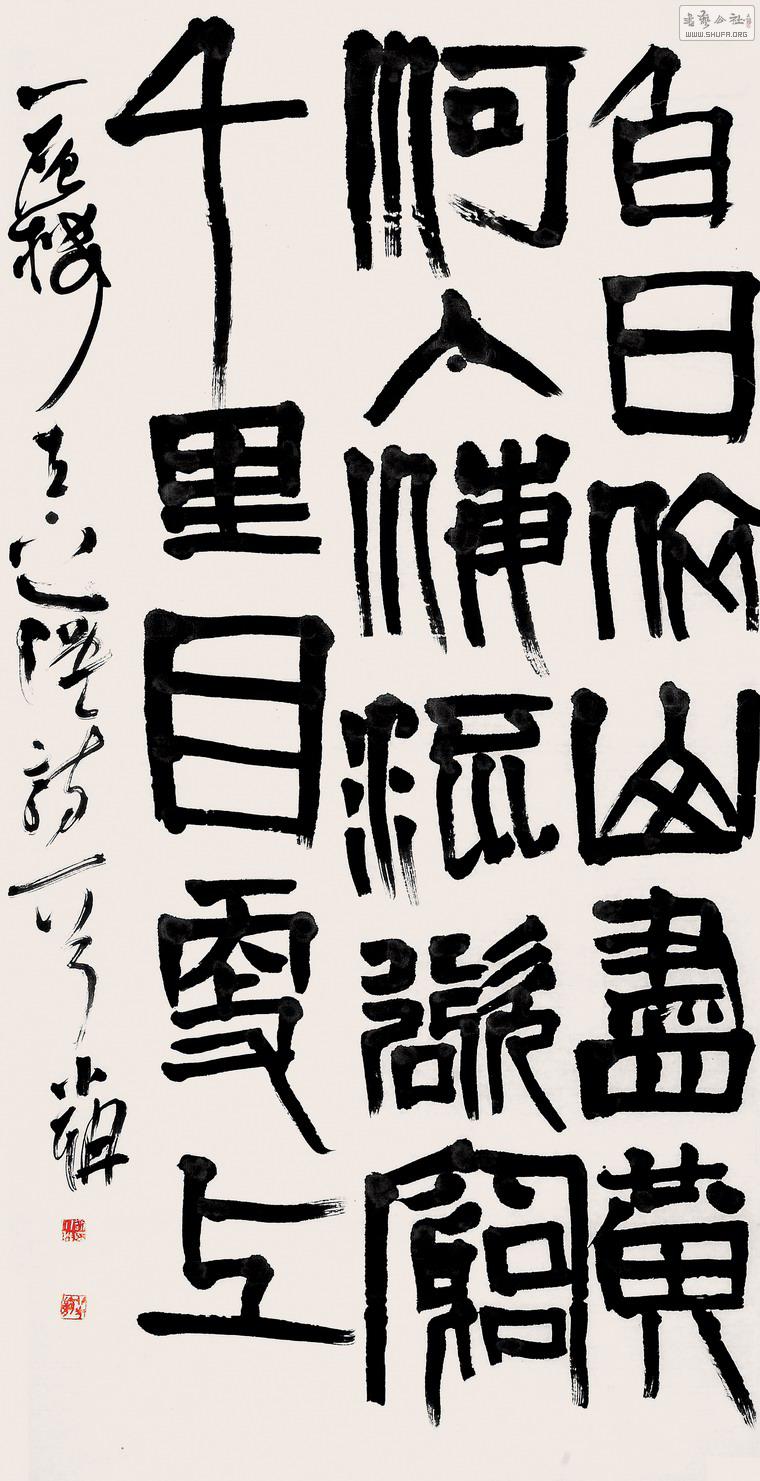 白日依山盡黃
河入海流欲窮
千里目更上
一層樓 王之渙詩一首
書藝公社
WWW.SHUFA.ORG